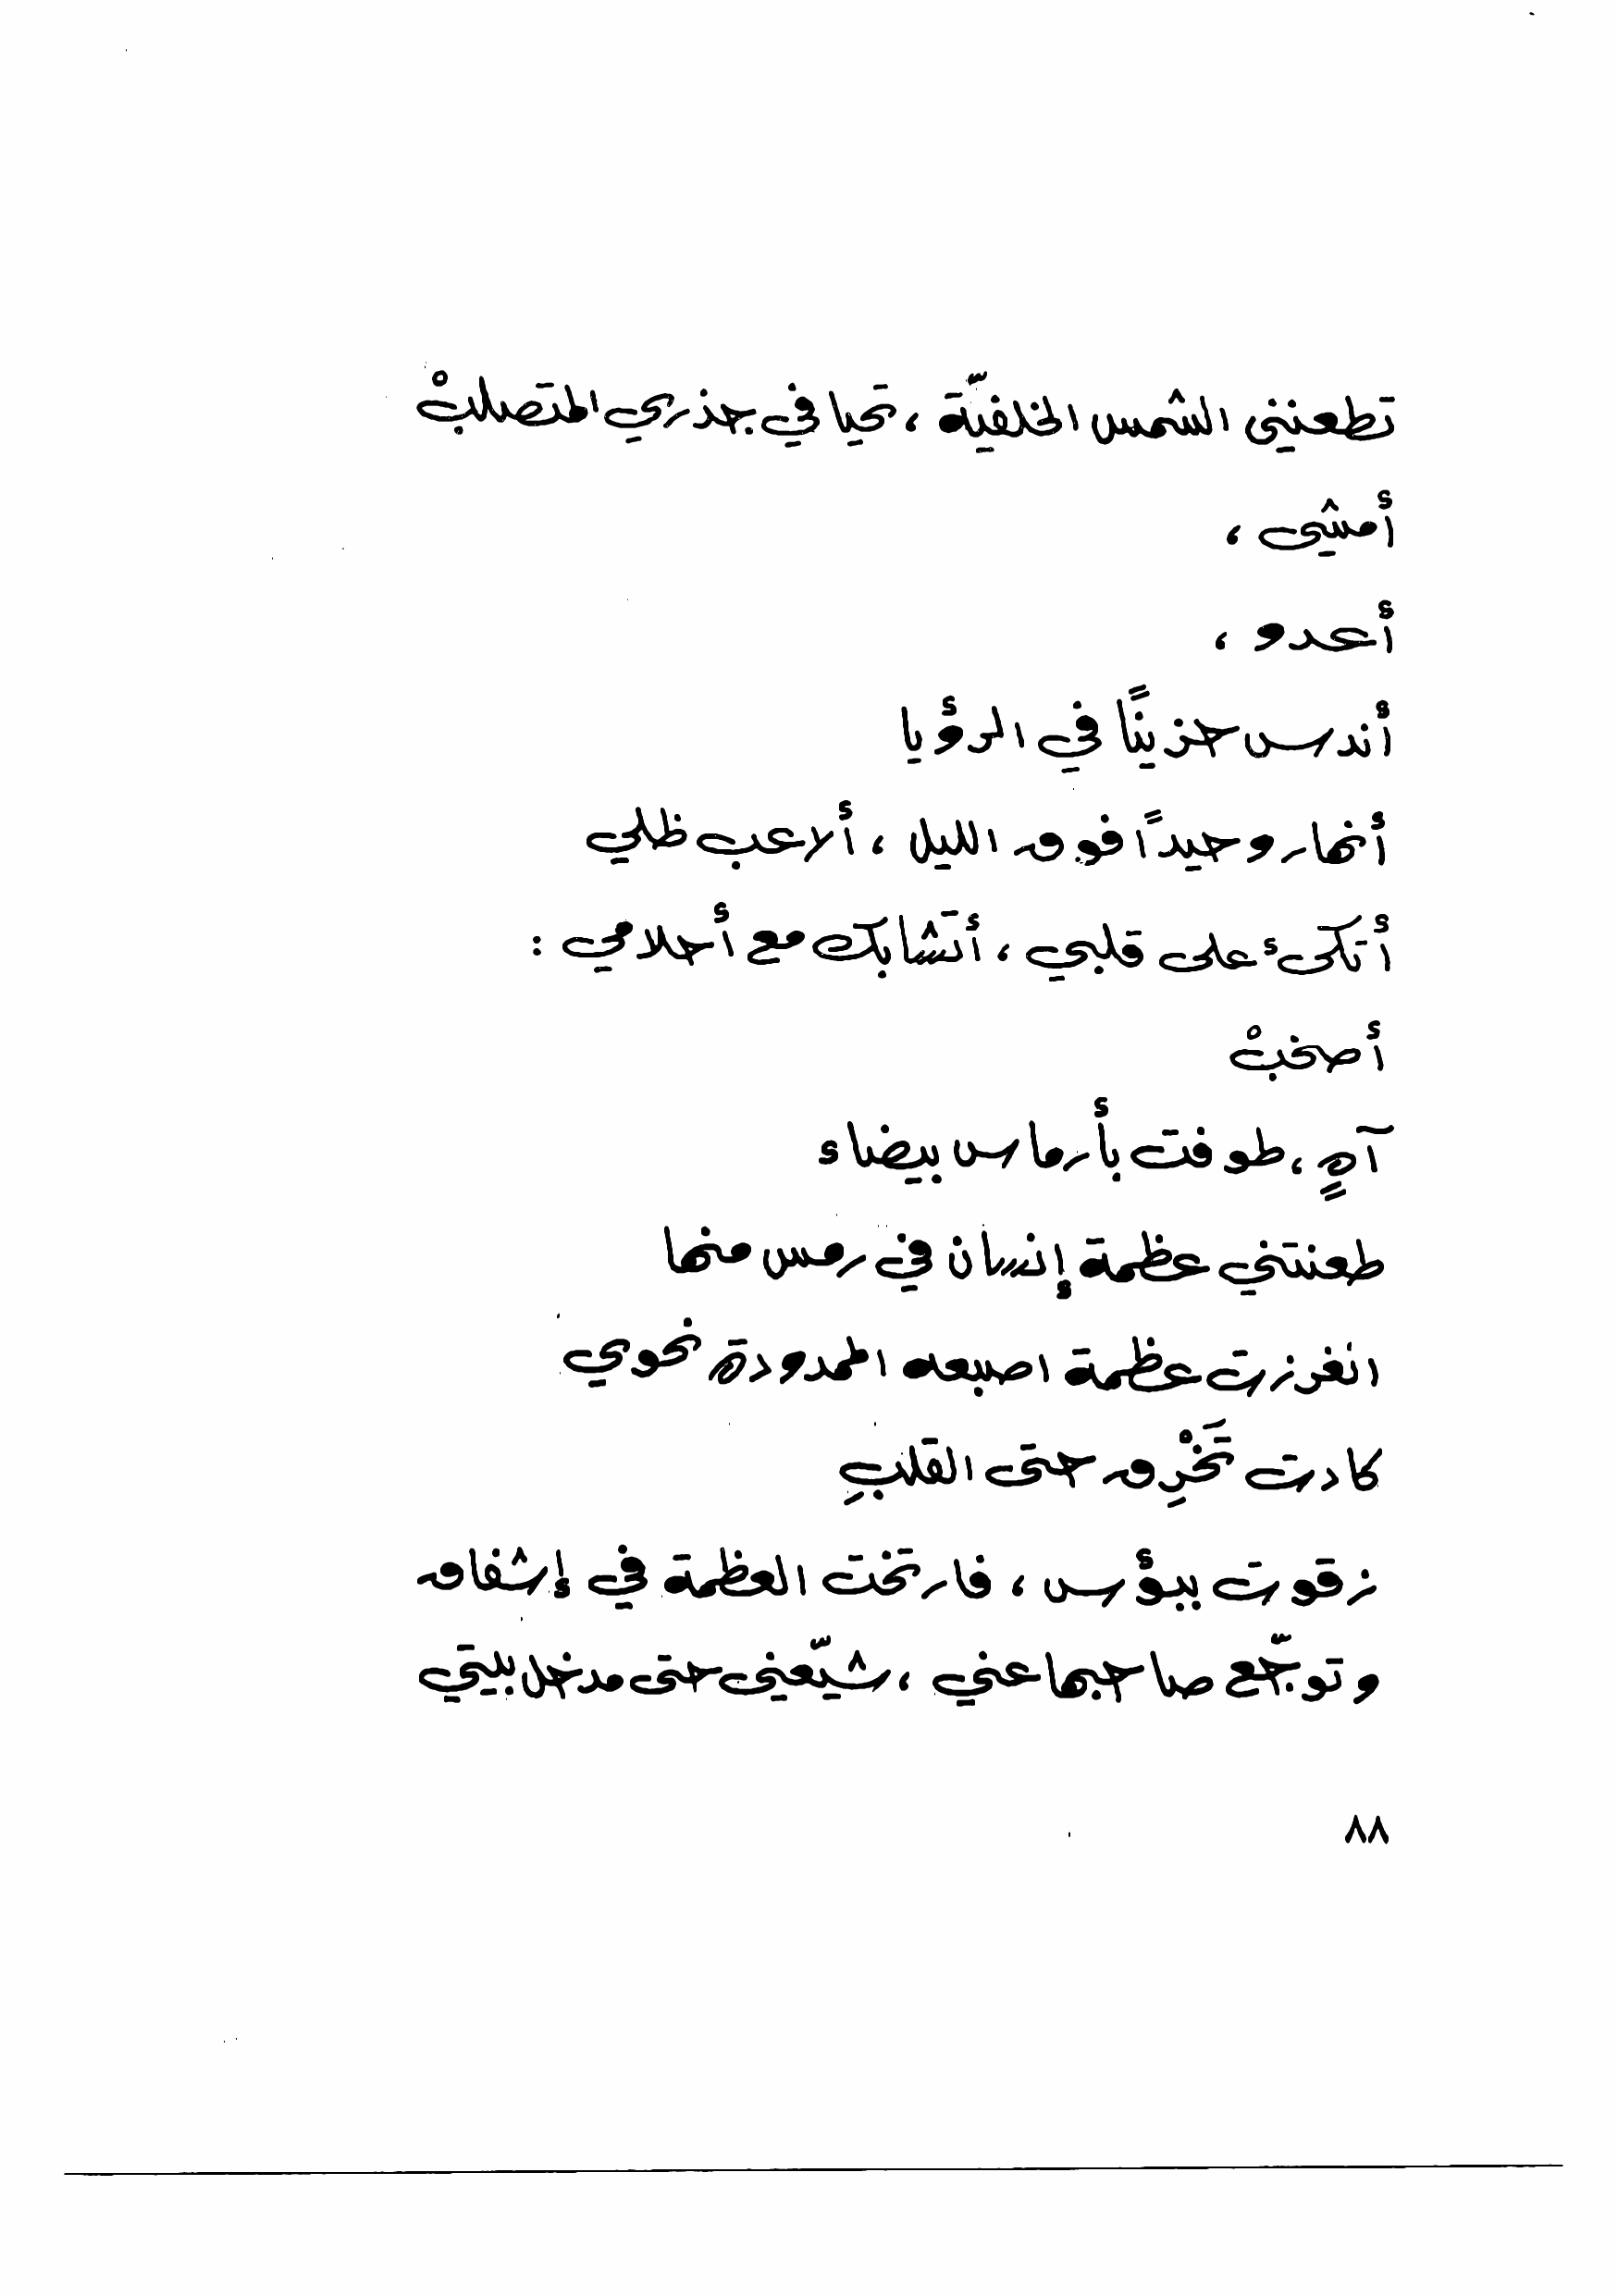 تطعنني الشمس الخلفيّة ، تحيا في جذري المتصلبْ
أمشي ،
أعدو ،
أندس حزينًا في الرؤيا
أنهار وحيداً فوق الليل ، ألاعب ظلي
أتكئ على قلبي ، أتشابك مع أحلامي :
أصخبْ
آهٍ ، طوفت بأرماس بيضاء
طعنتني عظمة إنسان في رمس منها
انغرزت عظمة اصبعه الممدودة نحوي
كادت تَخْرِق حتى القلبِ
زقوت ببؤس ، فارتخت العظمة في إشفاق
وتوجّع صاحبها عني ، شيّعني حتى مدخل بيتي
٨٨